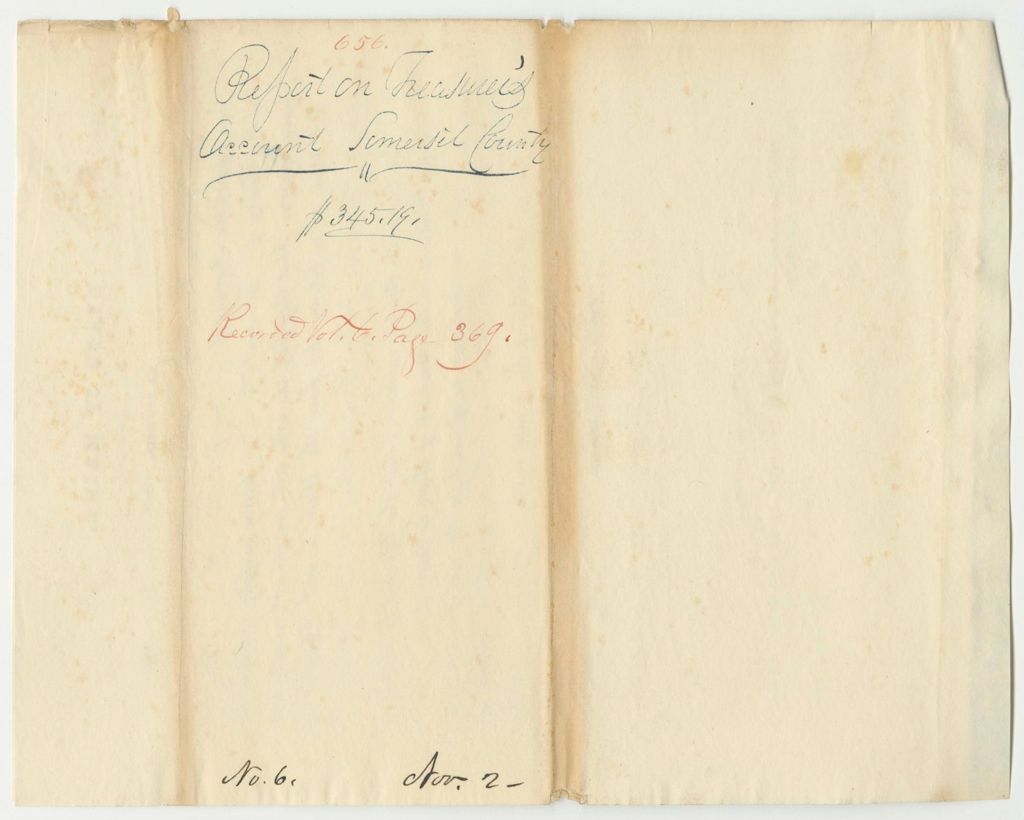 656.
Report on Treasurer's
Account Somerset County
$345.19.
Recorded Vol. 6. Page 369.
No. 6. Nov. 2-